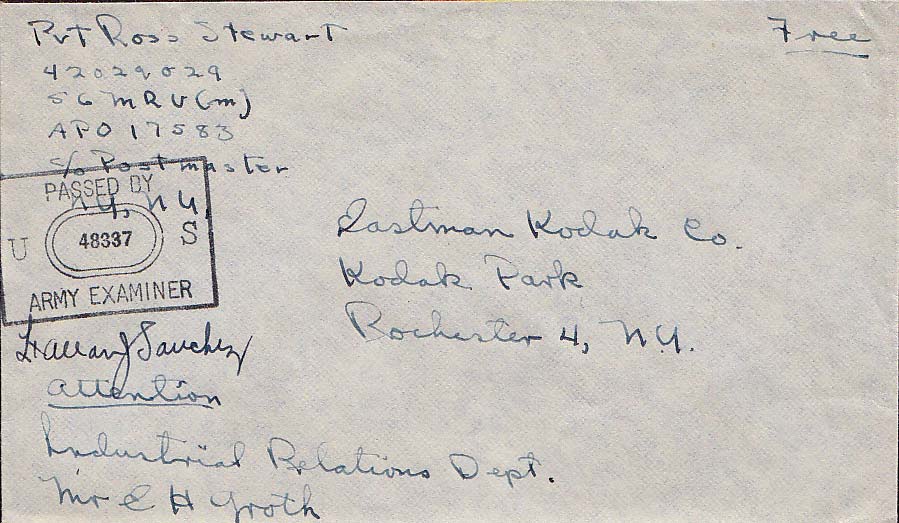 Pvt Ross Stewart
Free
42029029
56 MRU (m)
APO 17583
c/o Postmaster
N.Y., N.Y.
PASSED BY
U 48337 S
ARMY EXAMINER
Eastman Kodak Co.
Kodak Park
Rochester 4, N.Y.
Sanchez
Attention
Industrial Relations Dept.
Mr E H Groth